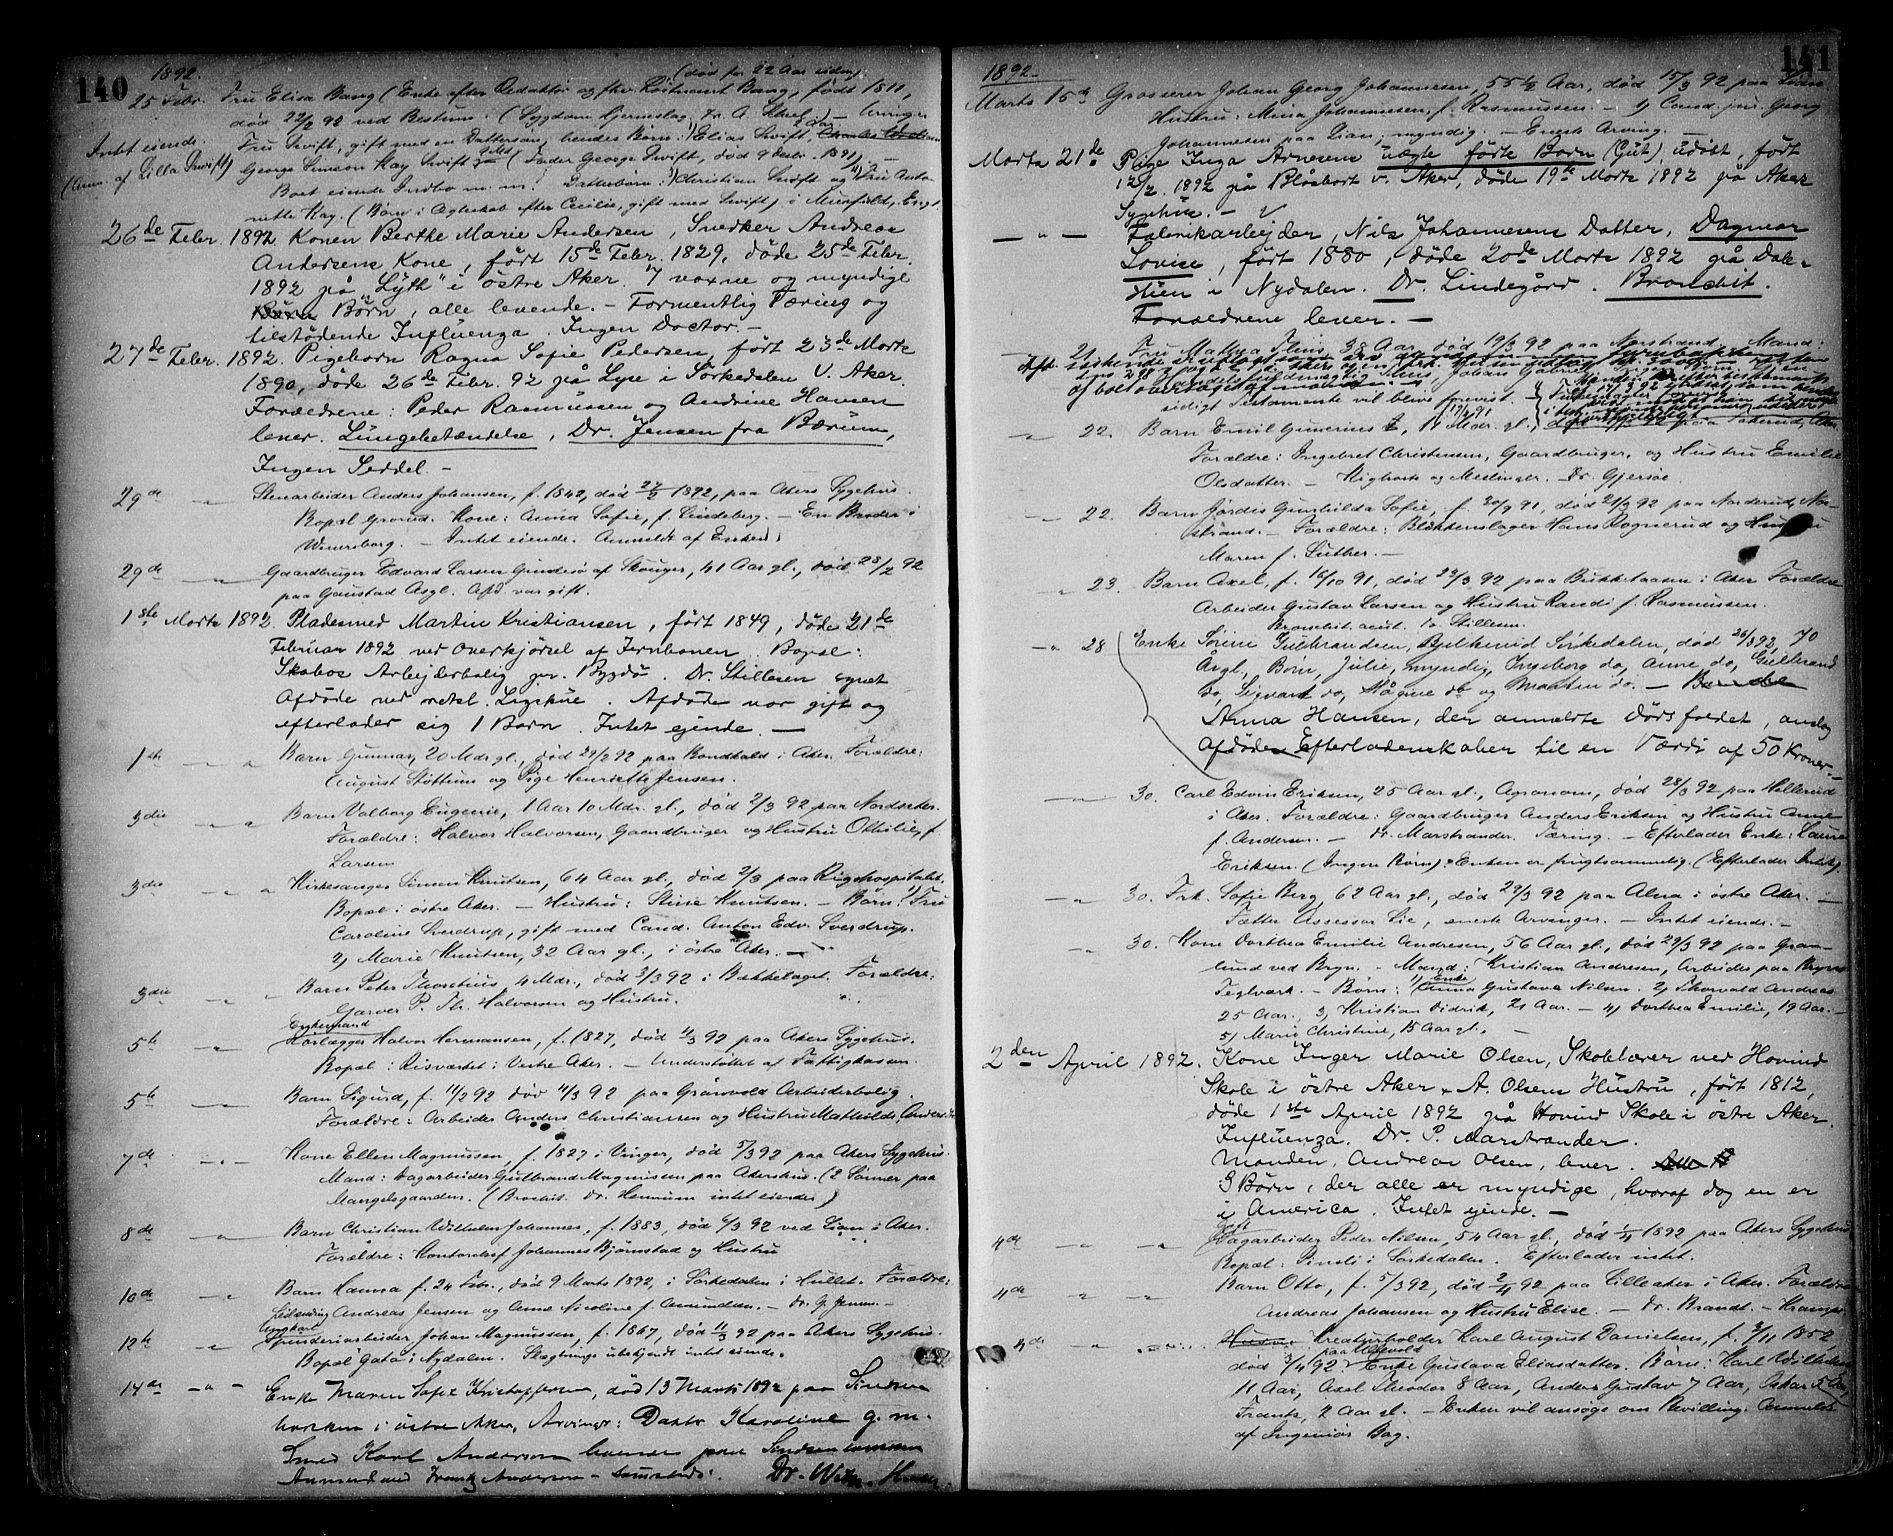 140
1892.
(død for 22 Aar siden)
25 Febr. Fru Elisa Bang (Enke efter Redaktør og fhv. Bang, født 1811,
død 22/2 92 ved Bestum. (Sygdom Hjerneslag, Dr. A. ) – Arvinger
Intet eiende. Fru Swift, gift med en Dattersøn, hendes Børn: 1) Elias Swift,
(Anm. af Lilla Swift) George Simeon Kay Swift (Fader George Swift, død 9 Decbr. 1891)
Boet eiende Indbo m. m. Datterbørn: 1) Christian Swift og Fru Anto-
nette Kay. (Børn i Ægteskab efter Cecilie, gift med Swift) i
26de Febr. 1892. Konen Berthe Marie Andersen, Snedker Andreas
Andersens Kone, født 15de Febr. 1829, døde 25de Febr.
1892 på "Lyth" i østre Aker. 7 voxne og myndige
Børn, alle levende. – Formentlig Tæring og
tilstødende Influenza. Ingen Doctor. –
27de Febr. 1892. Pigebarn Ragna Sofie Pedersen, født 23de Marts
1890, døde 26de Febr. 92 på Lyse i Sørkedalen V. Aker.
Forældrene: Peder Rasmussen og Andrine Hansen
lever. Lungebetændelse, Dr. Jensen fra Bærum,
Ingen Seddel. –
29de – " – Stenarbeider Anders Johansen, f. 1842, død 27/2 1892, paa Akers Sygehus.
Bopæl Grorud. Kone: Anna Sofie, f. Lindeberg. – En Broder i
Wenersborg. – Intet eiende. Anmeldt af Enken.
29de – " – Gaardbruger Edvard Larsen Gundesø af Skouger, 41 Aar gl., død 28/2 92
paa Gaustad Asyl. Afd. var gift.
1ste Marts 1892. Pladsmand Martin Kristiansen, født 1849, døde 21de
Februar 1892 ved Overkjørsel af Jernbanen. Bopæl:
Skabos Arbejderbolig pr. Bygdø. Dr. Stillesen synet
Afdøde ved Ligskue. Afdøde var gift og
efterlader sig 1 Barn. Intet ejende. –
1ste – " Barn Gunnar, 20 Mdr gl., død 29/2 92 paa i Aker. Forældre:
August Støttum og Pige Henriette Jensen.
3die – " Barn Valborg Eugenie, 1 Aar 10 Mdr. gl., død 2/3 92 paa Nordseter.
Forældre: Halvor Halvorsen, Gaardbruger og Hustru Othilie, f.
Larsen
3die – " Kirkesanger Simen Knutsen, 64 Aar gl., død 2/3 paa Rigshospitalet.
Bopæl: østre Aker. – Hustru: Stine Knutsen. – Børn: 1) Fru
Caroline Sverdrup, gift med Cand. Anton Edv. Sverdrup.
2) Marie Knutsen, 32 Aar gl., i østre Aker. –
3die – " Barn Peter Thorelius, 4 Mdr., død 3/3 92 i Bækkelaget. Forældre:
Garver P. Th. Halvorsen og Hustru.
Enkemand
5te – " Halvor Hermansen, f. 1827, død 4/3 92 paa Akers Sygehus.
Bopæl: Risværket i Vestre Aker. – Understøttet af Fattigkassen.
5te – " Barn Sigurd, f. 11/2 92 død 4/3 92 paa Arbeiderbolig.
Forældre: Arbeider Anders Christiansen og Hustru Mathilde,
7de – " – Kone Ellen Magnussen, f. 1827 i Vinger, død 5/3 92 paa Akers Sygehus.
Mand: Dagarbeider Gulbrand Magnussen paa Akershus. (2 Sønner paa
Mangelsgaarden. (Bronkit. Dr. Hennum intet eiende)
8de – " Barn Christian Wilhelm Johannes, f. 1883, død 6/3 92 ved Lian i Aker.
Forældre: Contorchef Johannes Bjørnstad og Hustru
10de – " Barn Hanna f. 24 Febr., død 9 Marts 1892, i Sørkedalen i Hullet. Forældre:
Andreas Jensen og Anne Nicoline f. Amundsen. – Dr. G. Jensen. –
Ungkarl
12te – " Spinderiarbeider Johan Magnussen, f. 1867, død 11/3 92 paa Akers Sygehus.
Bopæl Gata i Nydalen. Slægtninge ubekjendt intet eiende.
14de – " – Enke Maren Sofie Kristoffersen, død 13 Marts 1892 paa Sindsen
i østre Aker, Arvinger: Datter Karoline g. m.
Smed Karl Andersen boende paa Sindsen
Anmeld. ved Frantz Andersen – Dr. Wilh.
141
1892.
Marts 15de Grosserer Johan Georg Johannesen, 55 1/2 Aar, død 15/3 92 paa Lian
Hustru: Mina Johannesen, f. Rasmussen. – 1) Cand. jur. Georg
Johannesen paa Lian, myndig. – Eneste Arving.
Marts 21de Pige Inga Arnesens uægte fødte Barn (Gut), udøbt, født
12/2. 1892 på Blåsbort v. Aker, døde 19de Marts 1892 på Aker
Sygehus. –
– " – Fabrikarbejder, Nils Johannesens Datter, Dagmar
Lovise, født 1880, døde 20de Marts 1892 på Dale-
Hien i Nydalen. Dr. Lindegård. Bronchit.
Forældrene lever. –
– 21. Fru 38 Aar, død 19/3 92 paa Norstrand. Mand:
sidigt Testamente vil blive forevist.
– " 22. Barn Emil Gunerius E, f 17/4 91, 11 Mdr. gl.,
Forældre: Ingebret Christensen, Gaardbruger, og Hustru Emilie
Olsdatter. – Kighoste og Meslinger. Dr. Gjersøe.
– " 22. Barn Jørdis Gunhilda Sofie, f. 20/9 91, død 21/3 92 paa Norderud, Nor-
strand. – Forældre: Blikkenslager Hans Rognerud og Hustru
Maren f. Luther. –
– " 23. Barn Axel, f. 16/10 91, død 22/3 92 paa Bukketaasen i Aker Forældre
Arbeider Gustav Larsen og Hustru Randi f. Rasmussen.
Bronchit acut. Dr. Stillesen.
– " 28 Enke Sørine Gulbrandsen, Bjelkerud Sørkedalen, død 26/3 92, 70
År gl., Børn, Julie, myndig, Ingeborg do, Anne do, Gulbrand
do, Sigvart do, Magine do og Marthen do. –
Anna Hansen, der anmeldte Dødsfaldet, anslog
Afdødes Efterladenskaber til en Værdi af 50 Kroner. –
– " 30. Carl Edvin Eriksen, 25 Aar gl., Agronom, død 28/3 92 paa Hellerud
i Aker. Forældre: Gaardbruger Anders Eriksen og Hustru Anne
f. Andersen. – Dr. Marstrander. Tæring. – Efterlader Enke: Laura
Eriksen. (Ingen Børn). Enken er frugtsommelig. (Efterlader Intet).
– " 30. Frk. Sofie Berg, 62 Aar gl., død 29/3 92 paa Alna i østre Aker. –
Fætter Assessor Lie, eneste Arvinger. – Intet eiende. –
– " 30. Kone Dorthea Emilie Andresen, 56 Aar gl., død 29/3 92 paa Gran-
lund ved Bryn. – Mand: Kristian Andresen, Arbeider paa Bryns
Teglværk. – Børn: 1) Enke Anna Gustava Nilsen. 2) Thorvald Andreas
25 Aar. 3, Kristian Didrik, 21 Aar. – 4) Dorthea Emilie, 19 Aar. –
5) Marie Christine, 15 Aar gl. –
2den April 1892. Kone Inger Marie Olsen, Skolelærer ved Hovind
Skole i østre Aker A. Olsens Hustru, født 1812,
døde 1ste April 1892 på Hovind Skole i østre Aker.
Influenza. Dr. P. Marstrander.
Manden, Andreas Olsen, lever.
3 Børn, der alle er myndige, hvoraf dog en er
i America. Intet ejende. –
Gift
4de – " – Dagarbeider Peder Nilsen, 54 Aar gl., død 1/4 1892 paa Akers Sygehus
Bopæl: Finsli i Sørkedalen. Efterlader intet.
4de – " – Barn Otto, f. 5/3 92, død 2/4 92 paa Lilleaker i Aker. Forældre
Andreas Johansen og Hustru Elise. – Dr. Brandt. – Krampe.
4de – " Kreaturholder Karl August Danielsen, f. 3/11 1852,
død 3/4 92 paa Ullevold Enke Gustava Eliasdatter. Børn: Karl Wilhelm
11 Aar, Axel Theodor 8 Aar, Anders Gustav 7 Aar, Oskar 5 Aar,
Frants, 2 Aar gl. – Enken vil ansøge om Bevilling. Anmeldt
af Ingeniør Bag.